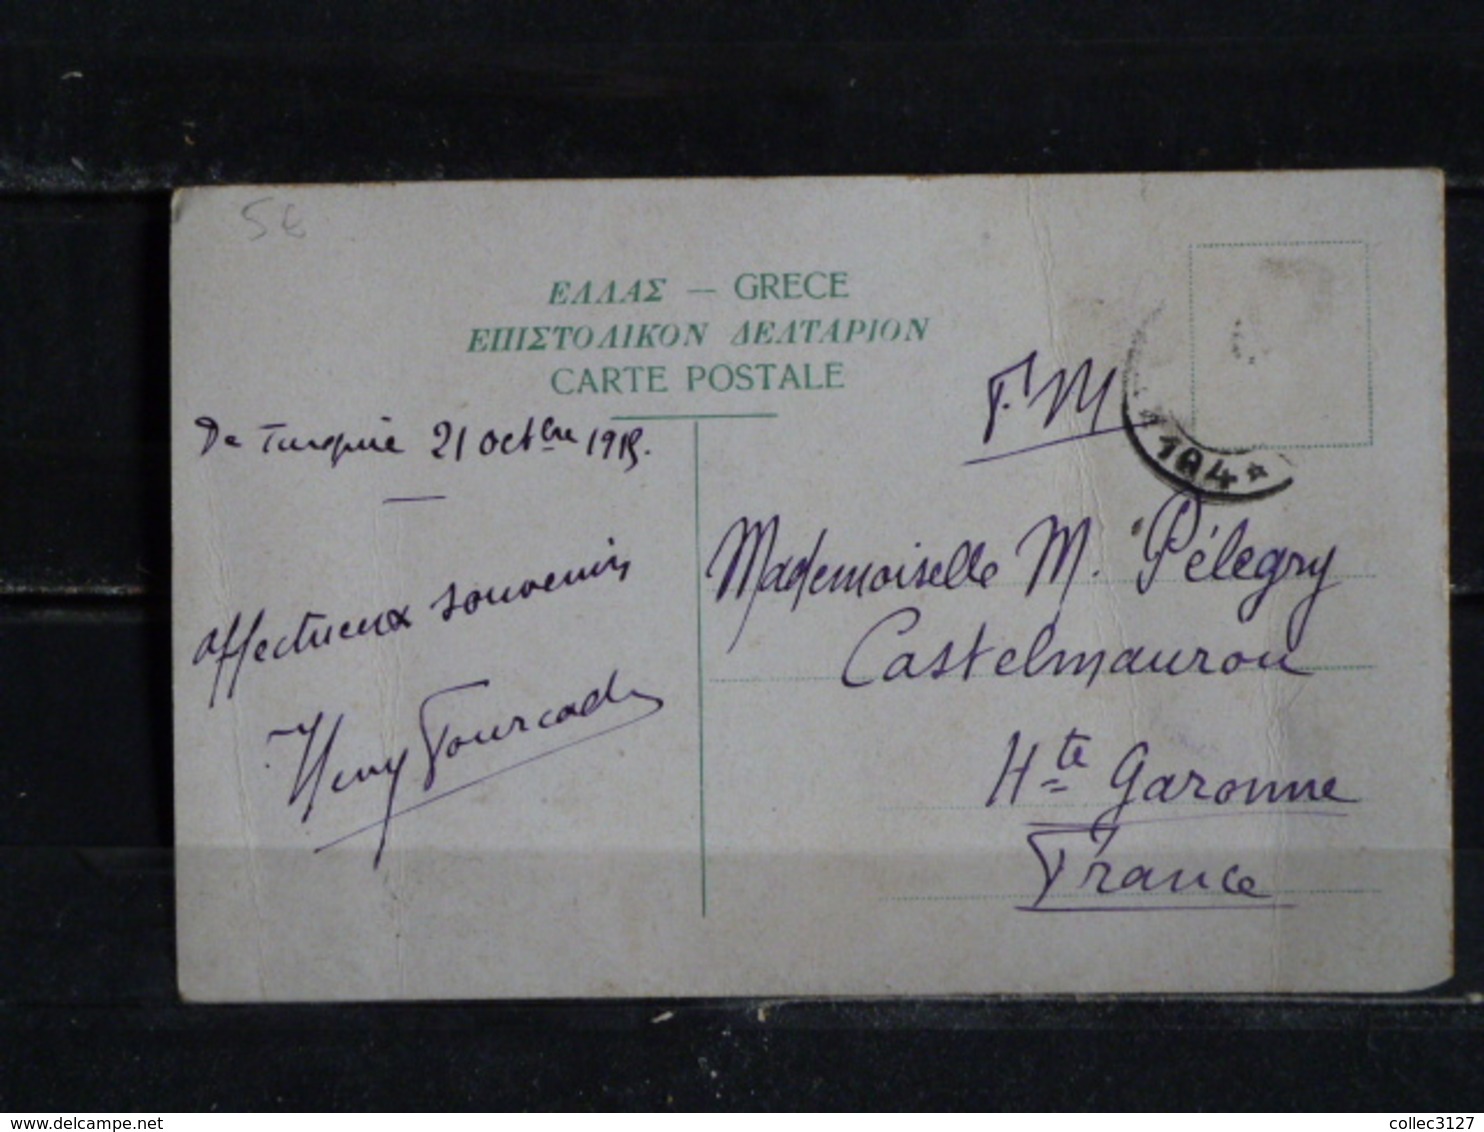 5€
ΕΛΛΑΣ — GRECE
ΕΠΙΣΤΟΛΙΚΟΝ ΔΕΛΤΑΡΙΟΝ
CARTE POSTALE
F.M
194 *
De Turquie 21 octbre 1915.
affectueux souvenirs
Henry Fourcade
Mademoiselle M. Pélegry
Castelmaurou
Hte Garonne
France
www.delcampe.net
collec3127